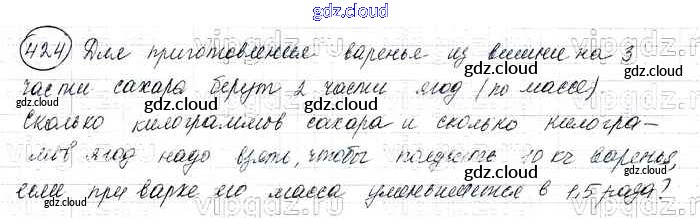 gdz.cloud
424 Для приготовления варенье из вишни на 3
gdz.cloud gdz.cloud
части сахара берут 2 части ягод (по массе).
gdz.cloud gdz.cloud gdz.cloud
Сколько килограммов сахара и сколько килогра-
gdz.cloud gdz.cloud
мов ягод надо взять, чтобы получить 10 кг варенья,
gdz.cloud gdz.cloud gdz.cloud
если при варке его масса уменьшается в 1,5 раза?
gdz.cloud gdz.cloud